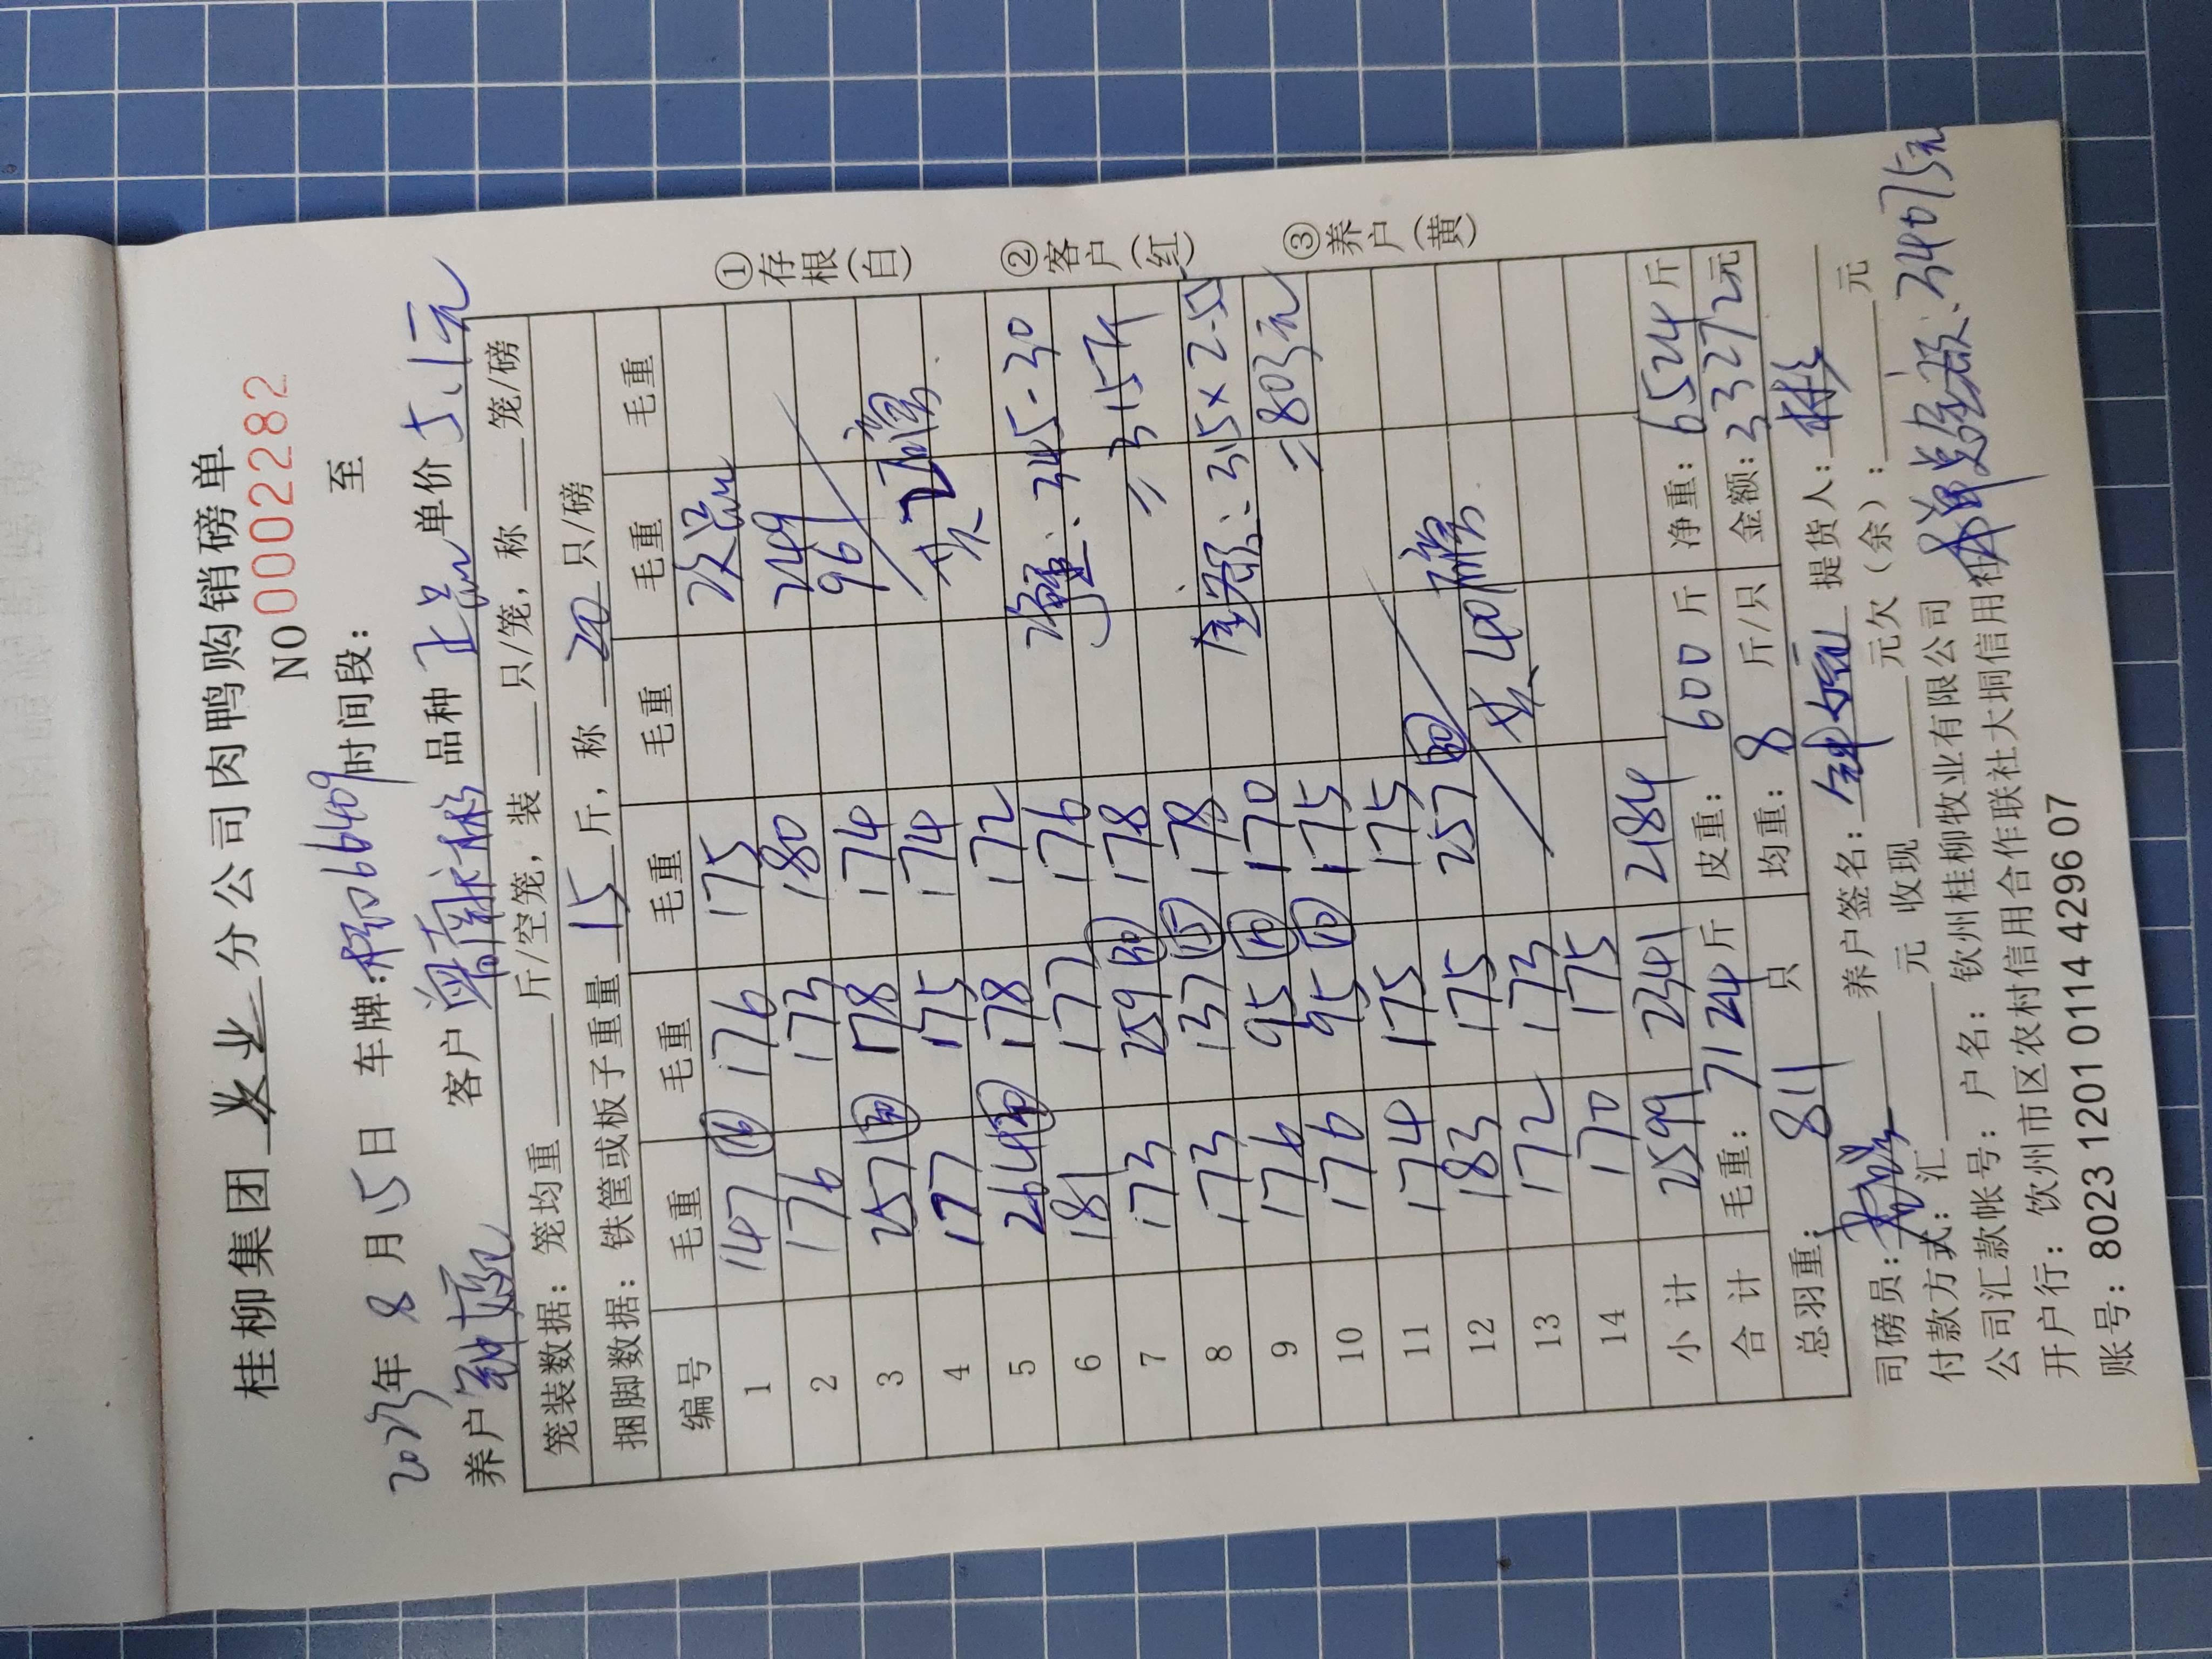 桂柳集团 农业 分公司肉鸭购销磅单
NO 0002282
2023年 8 月 15 日 车牌: 066409 时间段: 至
养户 钟 客户 曾南林 品种 正品 单价 5.1元
笼装数据: 笼均重 斤/空笼, 装 只/笼, 称 笼/磅
捆脚数据: 铁筐或板子重量 15 斤, 称 20 只/磅
编号 毛重 毛重 毛重 毛重 毛重 毛重
1 147 (16) 176 175 次品
2 176 173 180 249
3 257 (30) 178 174 96
4 177 175 174 共2磅
5 264 (30) 178 172 净重: 345-30
6 181 177 176 =315斤
7 173 259 (30) 178
8 173 137 (15) 178 金额: 315×2.55
9 176 95 (10) 170 =803元
10 176 95 (10) 175
11 174 175 175
12 183 175 257 (30)
13 172 173 共40磅
14 170 175
小计 2599 2341 2184
合计 毛重: 7124 斤 皮重: 600 斤 净重: 6524 斤
总羽重: 811 只 均重: 8 斤/只 金额: 33272元
司磅员: 养户签名: 钟 提货人: 林
付款方式: 汇 元 收现 元欠(余): 元
公司汇款帐号: 户名: 钦州桂柳牧业有限公司
开户行: 钦州市区农村信用合作联社大垌信用社 单总金额: 34075元
账号: 8023 1201 0114 4296 07
①存根(白)
②客户(红)
③养户(黄)